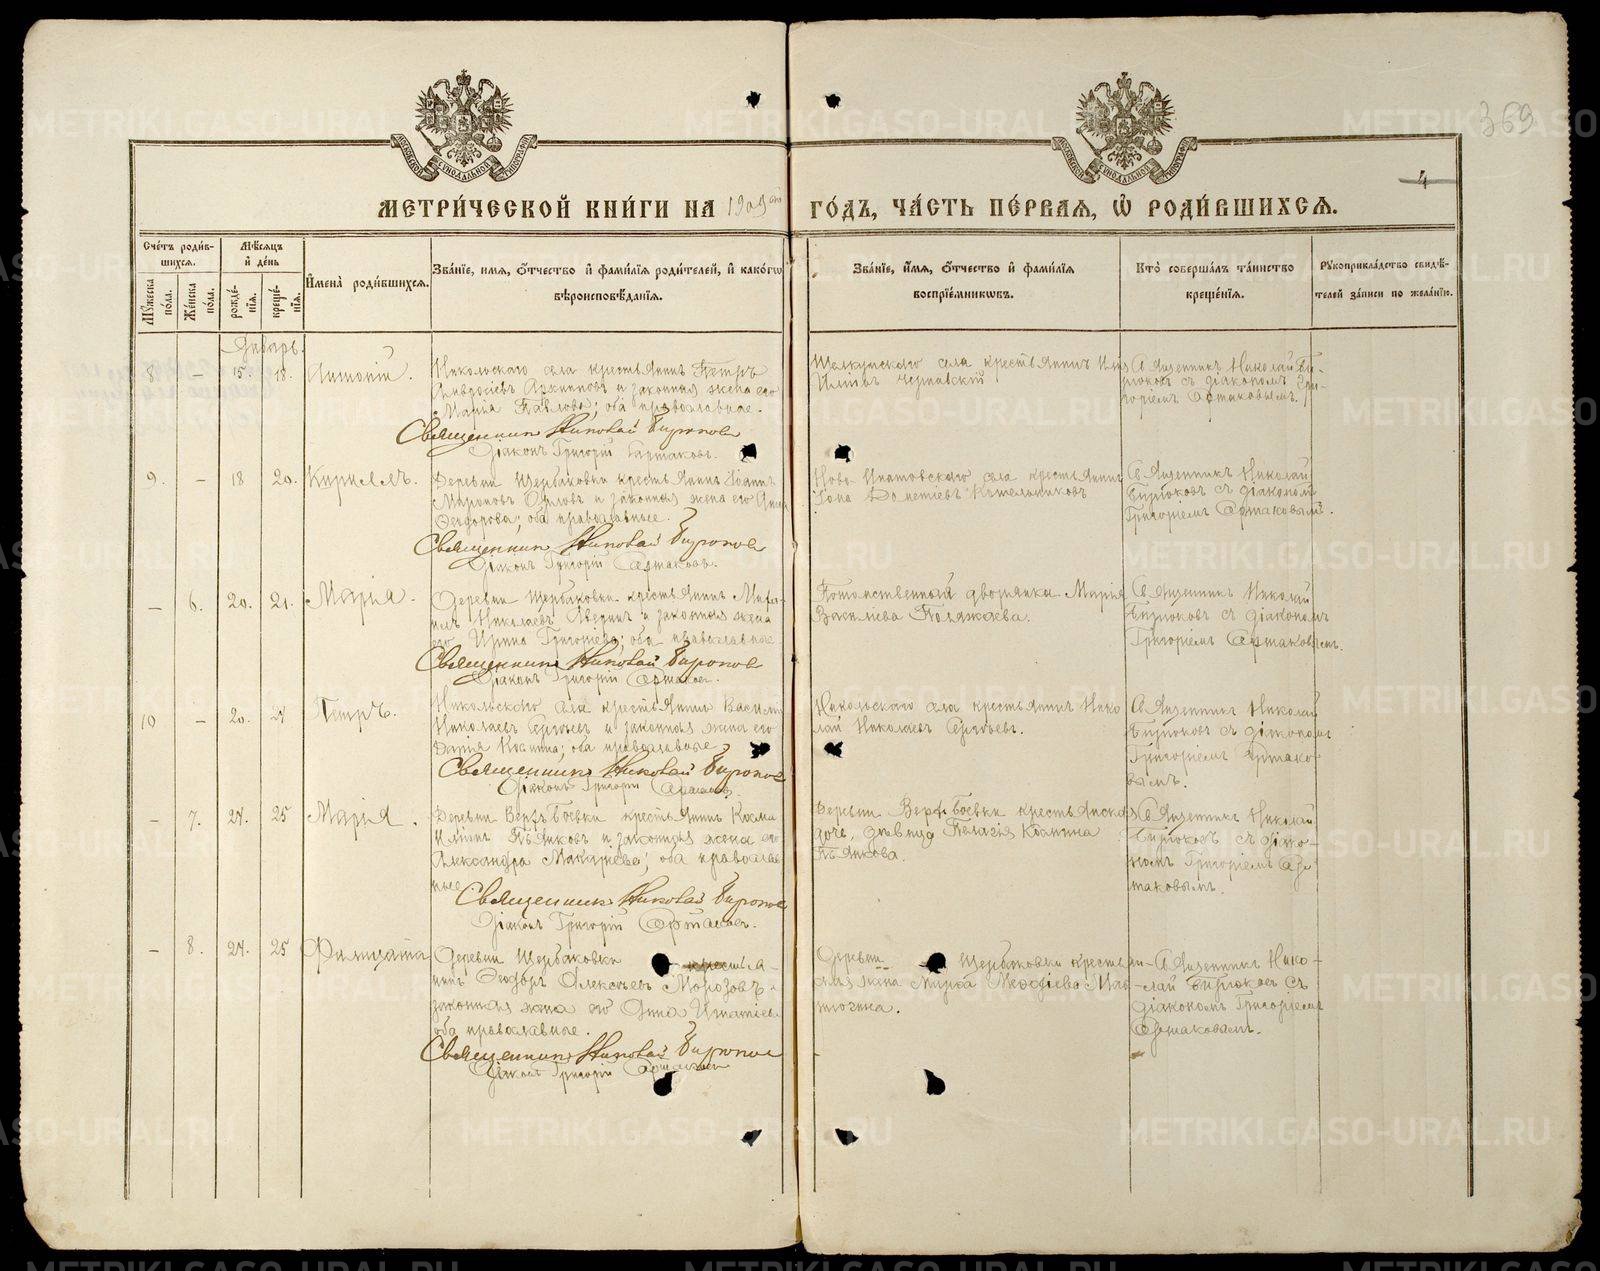 369
4
МЕТРИ́ЧЕСКОЙ КНИ́ГИ НА 1909 ГО́ДЪ, ЧА́СТЬ ПЕ́РВАЯ, Ѡ РОДИ́ВШИХСЯ.
Сче́тъ роди́вшихся.
Му́жеска по́ла.
Же́нска по́ла.
Мѣ́сяцъ и де́нь
рожде́нія.
креще́нія.
Имена̀ роди́вшихся.
Зва́ніе, имя, о́тчество и фами́лія роди́телей, и како́гѡ
вѣроисповѣ́данія.
Зва́ніе, и́мя, о́тчество и фами́лія
воспріе́мникѡвъ.
Кто̀ соверша́лъ та́инство
креще́нія.
Рукоприкла́дство свидѣ́-
телей за́писи по жела́нію.
Январь.
8 – 15. 18. Антоній.
Никольскаго села крестьянинъ Петръ
Амвросіевъ и законная жена его
Марія Павлова; оба православные.
Священникъ Николай Бирюковъ
Діаконъ Григорій Сартаковъ.
Щелкунскаго села крестьянинъ
Священникъ Николай Би-
рюковъ съ діакономъ Гри-
горіемъ Сартаковымъ.
9. – 18 20. Кириллъ.
Деревни Щербаковки крестьянинъ Іоаннъ
Мироновъ Орловъ и законная жена его Анна
Ѳеодорова; оба православные.
Священникъ Николай Бирюковъ
Діаконъ Григорій Сартаковъ.
Ново-Ипатовскаго села крестьянинъ
Дометіевъ Котельниковъ
Священникъ Николай
Бирюковъ съ діакономъ
Григоріемъ Сартаковымъ.
– 6. 20. 21. Марія.
Деревни Щербаковки крестьянинъ Миха-
илъ Николаевъ и законная жена
его Ирина Григоріева; оба православные
Священникъ Николай Бирюковъ
Діаконъ Григорій Сартаковъ.
Потомственный дворянка Марія
Василіева
Священникъ Николай
Бирюковъ съ діакономъ
Григоріемъ Сартаковымъ.
10 – 20. 21 Петръ.
Никольскаго села крестьянинъ Василій
Николаевъ Сергѣевъ и законная жена его
Дарія Космина; оба православные
Священникъ Николай Бирюковъ
Діаконъ Григорій Сартаковъ.
Никольскаго села крестьянинъ Нико-
лай Николаевъ Сергѣевъ.
Священникъ Николай
Бирюковъ съ діакономъ
Григоріемъ Сартако-
вымъ.
– 7. 24. 25 Марія.
Деревни Верхъ-Боевки крестьянинъ Косма
Пьянковъ и законная жена его
Александра Макаріева; оба православ-
ные
Священникъ Николай Бирюковъ
Діаконъ Григорій Сартаковъ.
Деревни Верхъ-Боевки крестьянская
дочь, дѣвица Пелагія Космина
Пьянкова.
Священникъ Николай
Бирюковъ съ діако-
номъ Григоріемъ Сар-
таковымъ.
– 8. 24. 25 Филицата
Деревни Щербаковки крестья-
нинъ Ѳеодоръ Алексѣевъ Морозовъ
законная жена его Анна Игнатіева
оба православные.
Священникъ Николай Бирюковъ
Діаконъ Григорій Сартаковъ
Деревни Щербаковки крестьян-
ская жена Меѳодіева
Священникъ Нико-
лай Бирюковъ съ
діакономъ Григоріемъ
Сартаковымъ.
METRIKI.GASO-URAL.RU